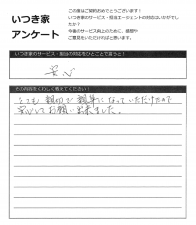 いつき家
アンケート
この度はご契約おめでとうございます!
いつき家のサービス・担当エージェントの対応はいかがでしたか?
今後のサービス向上の為に、感想や
ご意見をいただければと思います。
いつき家のサービス・担当の対応をひとことで言うと!
安心
その内容をくわしく教えてください!
とても親切で親身になっていただけたので
安心してお願い出来ました。